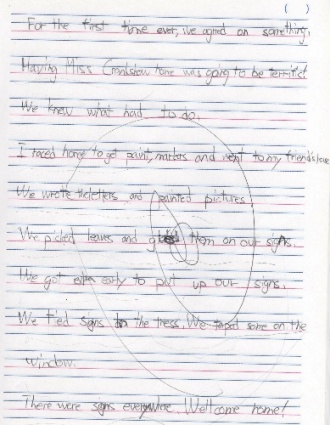 ( )
For the first time ever, we agreed on something.
Having Miss home was going to be terrific!
We knew what had to do.
I raced home to get paint, markers and went to my friend's house
We wrote the letters and painted pictures.
We picked leaves and glued them on our signs.
We got early to put up our signs.
We tied signs the tress. We taped some on the
window.
There were signs everywhere. Wellcome home!